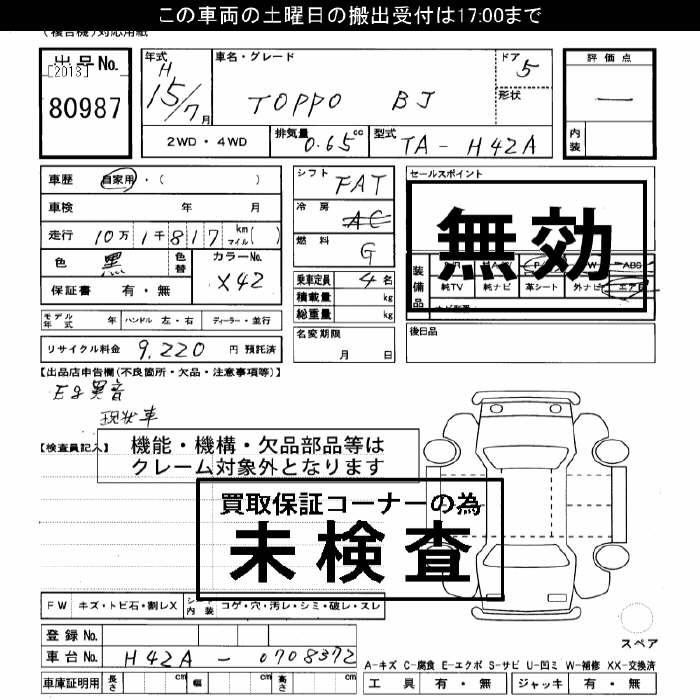 この車両の土曜日の搬出受付は17:00まで
(複合機)対応用紙
出品No.
[2013]
80987
年式
H
15/7月
車名・グレード
TOPPO BJ
ドア
5
形状
評価点
—
内装
2WD・4WD
排気量
0.65cc
型式
TA-H42A
車歴
自家用・( )
車検 年 月
走行 10万1千817km マイル( )
色
黒
色替
カラーNo.
X42
保証書 有・無
シフト
FAT
冷房
AC
燃料
G
乗車定員 4名
積載量 kg
総重量 kg
セールスポイント
無効
装備品
ABS
純TV 純ナビ 革シート 外ナビ エアB
モデル年式 年
ハンドル 左・右
ディーラー・並行
名変期限
月 日
後日品
リサイクル料金 9,220 円 預託済
【出品店申告欄(不良箇所・欠品・注意事項等)】
Eg異音
現状車
【検査員記入】
機能・機構・欠品部品等は
クレーム対象外となります
買取保証コーナーの為
未検査
FW キズ・トビ石・割レX
シート内装 コゲ・穴・汚レ・シミ・破レ・スレ
スペア
登録No.
車台No. H42A-0708372
A-キズ C-腐食 E-エクボ S-サビ U-凹ミ W-補修 XX-交換済
車庫証明用 長さ cm 幅 cm 高さ cm
工具 有・無 ジャッキ 有・無